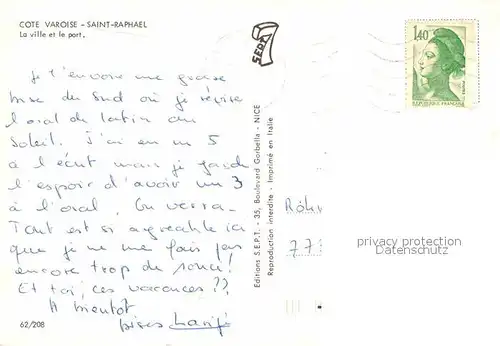 COTE VAROISE - SAINT-RAPHAEL
La ville et le port.
Je t'envoie une grosse
bise du Sud où je révise
l'oral de latin au
soleil. J'ai eu un 5
à l'écrit mais je garde
l'espoir d'avoir un 3
à l'oral. On verra.
Tout est si agréable ici
que je ne me fais pas
encore trop de souci!
Et toi, ces vacances ??
A bientôt
bises
62/208
SEPT
Editions S.E.P.T. - 35, Boulevard Gorbella - NICE
Reproduction interdite - Imprimé en Italie
1,40
REPUBLIQUE FRANÇAISE
POSTES
Röhr
77
privacy protection
Datenschutz